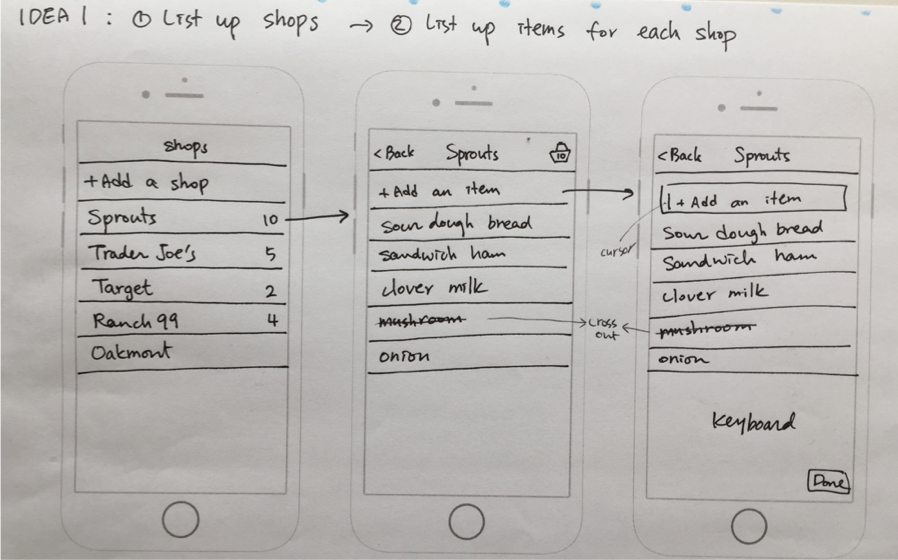 IDEA 1 : ① List up shops → ② List up items for each shop
shops
+Add a shop
Sprouts 10
Trader Joe's 5
Target 2
Ranch 99 4
Oakmont
<Back Sprouts 10
+ Add an item
Sour dough bread
sandwich ham
clover milk
mushroom
onion
cross
out
<Back Sprouts
+ Add an item
cursor
Sour dough bread
Sandwich ham
clover milk
mushroom
onion
keyboard
Done